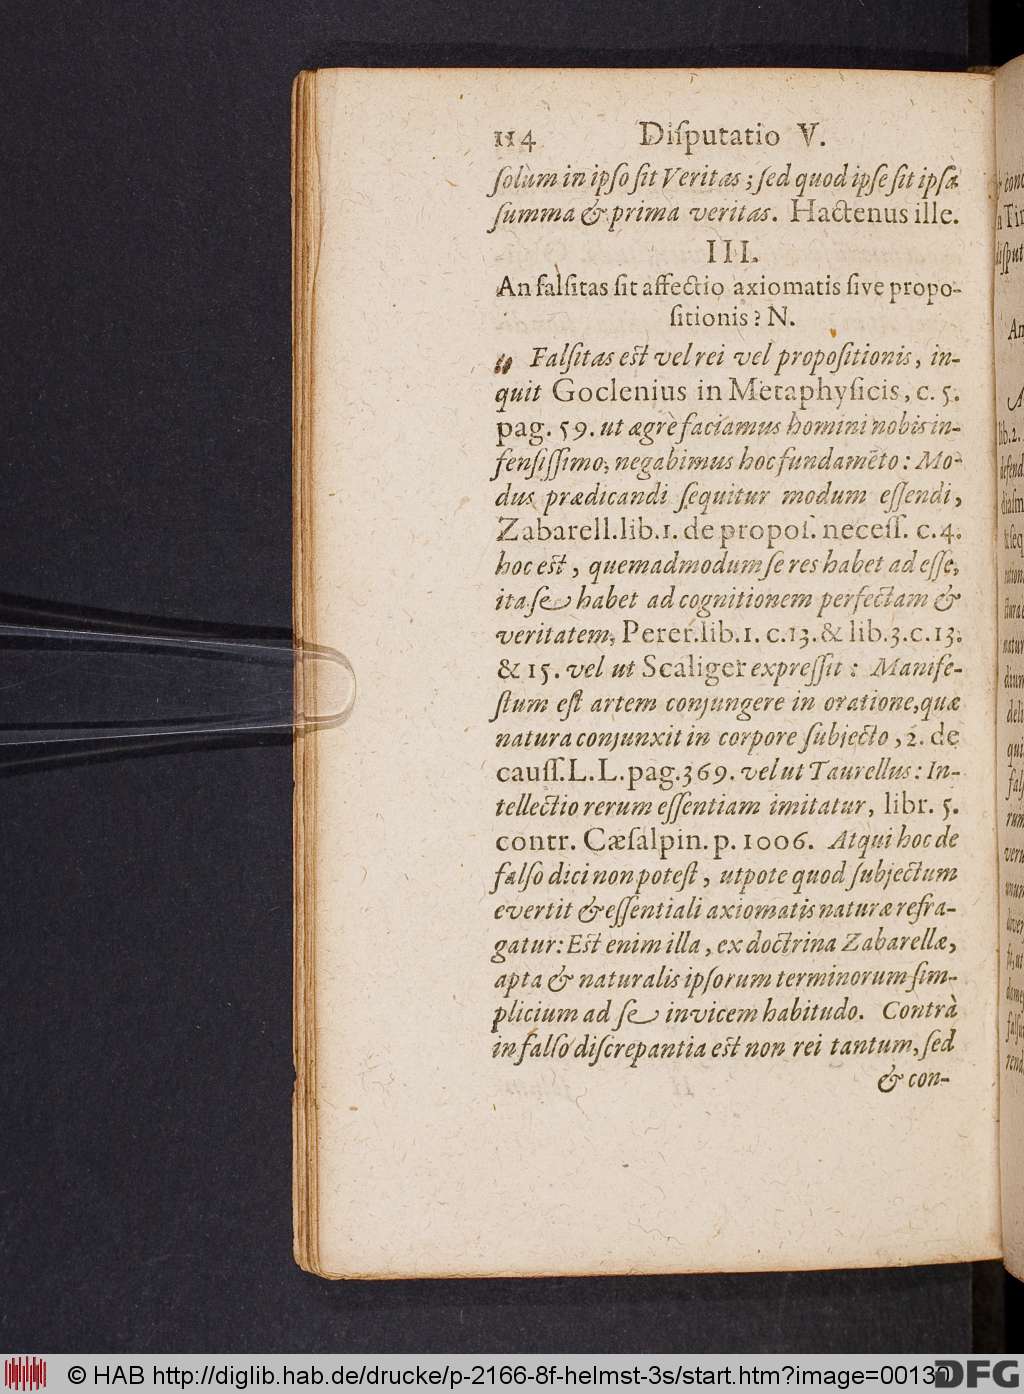 114 Diſputatio V.
ſolùm in ipſo ſit Veritas; ſed quod ipſe ſit ipſa
ſumma & prima veritas. Hactenus ille.
III.
An falſitas ſit affectio axiomatis ſive propo-
ſitionis? N.
Falſitas est vel rei vel propoſitionis, in-
quit Goclenius in Metaphyſicis, c. 5.
pag. 59. ut ægrè faciamus homini nobis in-
fenſiſſimo, negabimus hoc fundamẽto: Mo-
dus prædicandi ſequitur modum eſſendi,
Zabarell. lib. 1. de propoſ. neceſſ. c. 4.
hoc est, quemadmodum ſe res habet ad eſſe,
ita ſe habet ad cognitionem perfectam &
veritatem, Perer. lib. 1. c. 13. & lib. 3. c. 13.
& 15. vel ut Scaliger expreſſit: Manife-
ſtum eſt artem conjungere in oratione, quæ
natura conjunxit in corpore ſubjecto, 2. de
cauſſ. L. L. pag. 369. vel ut Taurellus: In-
tellectio rerum eſſentiam imitatur, libr. 5.
contr. Cæſalpin. p. 1006. Atqui hoc de
falſo dici non poteſt, utpote quod ſubjectum
evertit & eſſentiali axiomatis naturæ refra-
gatur: Est enim illa, ex doctrina Zabarellæ,
apta & naturalis ipſorum terminorum ſim-
plicium ad ſe invicem habitudo. Contrà
in falſo diſcrepantia est non rei tantum, ſed
& con-
© HAB http://diglib.hab.de/drucke/p-2166-8f-helmst-3s/start.htm?image=00130
DFG